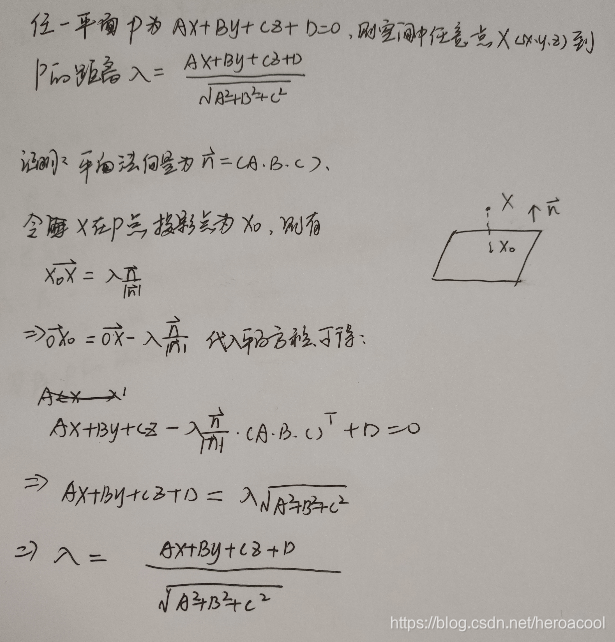 任一平面 P 为 AX+By+CZ+D=0, 则空间中任意点 X(x.y.z) 到
P的距离 λ = \frac{AX+By+CZ+D}{\sqrt{A²+B²+C²}}
证明: 平面法向量为 \vec{n} = (A.B.C).
令 X 在P点投影点为 X₀, 则有
\vec{X₀X} = λ\frac{\vec{n}}{|\vec{n}|}
⇒ \vec{OX₀} = \vec{OX} - λ\frac{\vec{n}}{|\vec{n}|} 代入平面方程可得:
AX+By+CZ - λ\frac{\vec{n}}{|\vec{n}|}·(A.B.C)^T + D = 0
⇒ AX+By+CZ+D = λ\sqrt{A²+B²+C²}
⇒ λ = \frac{AX+By+CZ+D}{\sqrt{A²+B²+C²}}
X ↑\vec{n}
↓X₀
https://blog.csdn.net/heroacool